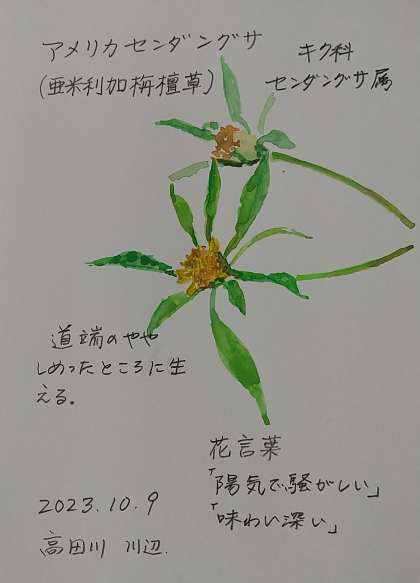 アメリカセンダングサ
(亜米利加栴檀草)
キク科
センダングサ属
道端のやや
しめったところに生
える。
花言葉
「陽気で騒がしい」
「味わい深い」
2023.10.9
高田川 川辺.